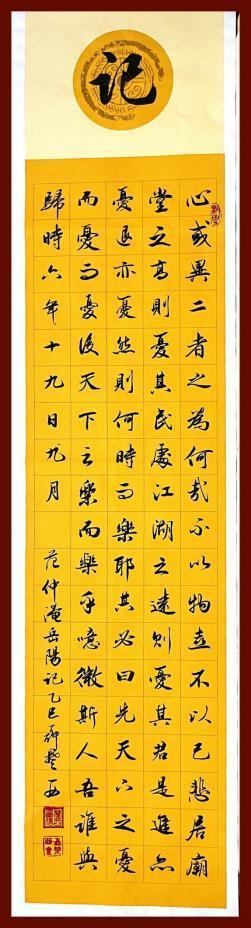 記
心或異二者之為何哉不以物喜不以己悲居廟
堂之高則憂其民處江湖之遠則憂其君是進亦
憂退亦憂然則何時而樂耶其必曰先天下之憂
而憂而憂後天下之樂而樂乎噫微斯人吾誰與
歸時六年十九日九月
范仲淹岳陽記乙巳